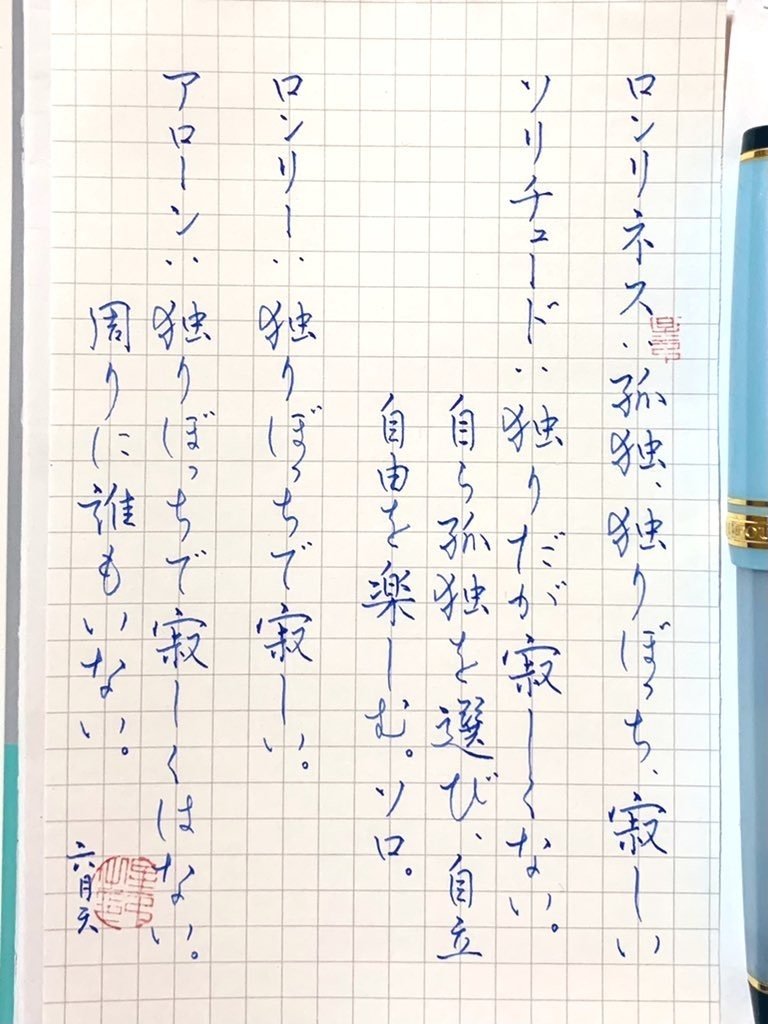 ロンリネス：孤独、独りぼっち、寂しい
ソリチュード：独りだが寂しくない。
自ら孤独を選び、自立
自由を楽しむ。ソロ。
ロンリー：独りぼっちで寂しい。
アローン：独りぼっちで寂しくはない。
周りに誰もいない。
六月天